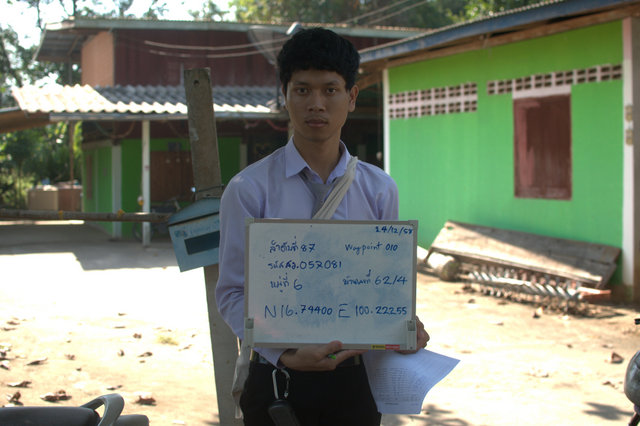 24/12/57
ลำดับที่ 87 Waypoint 010
รหัสสอ.057081
หมู่ที่ 6 บ้านเลขที่ 62/4
N 16.74400 E 100.22255